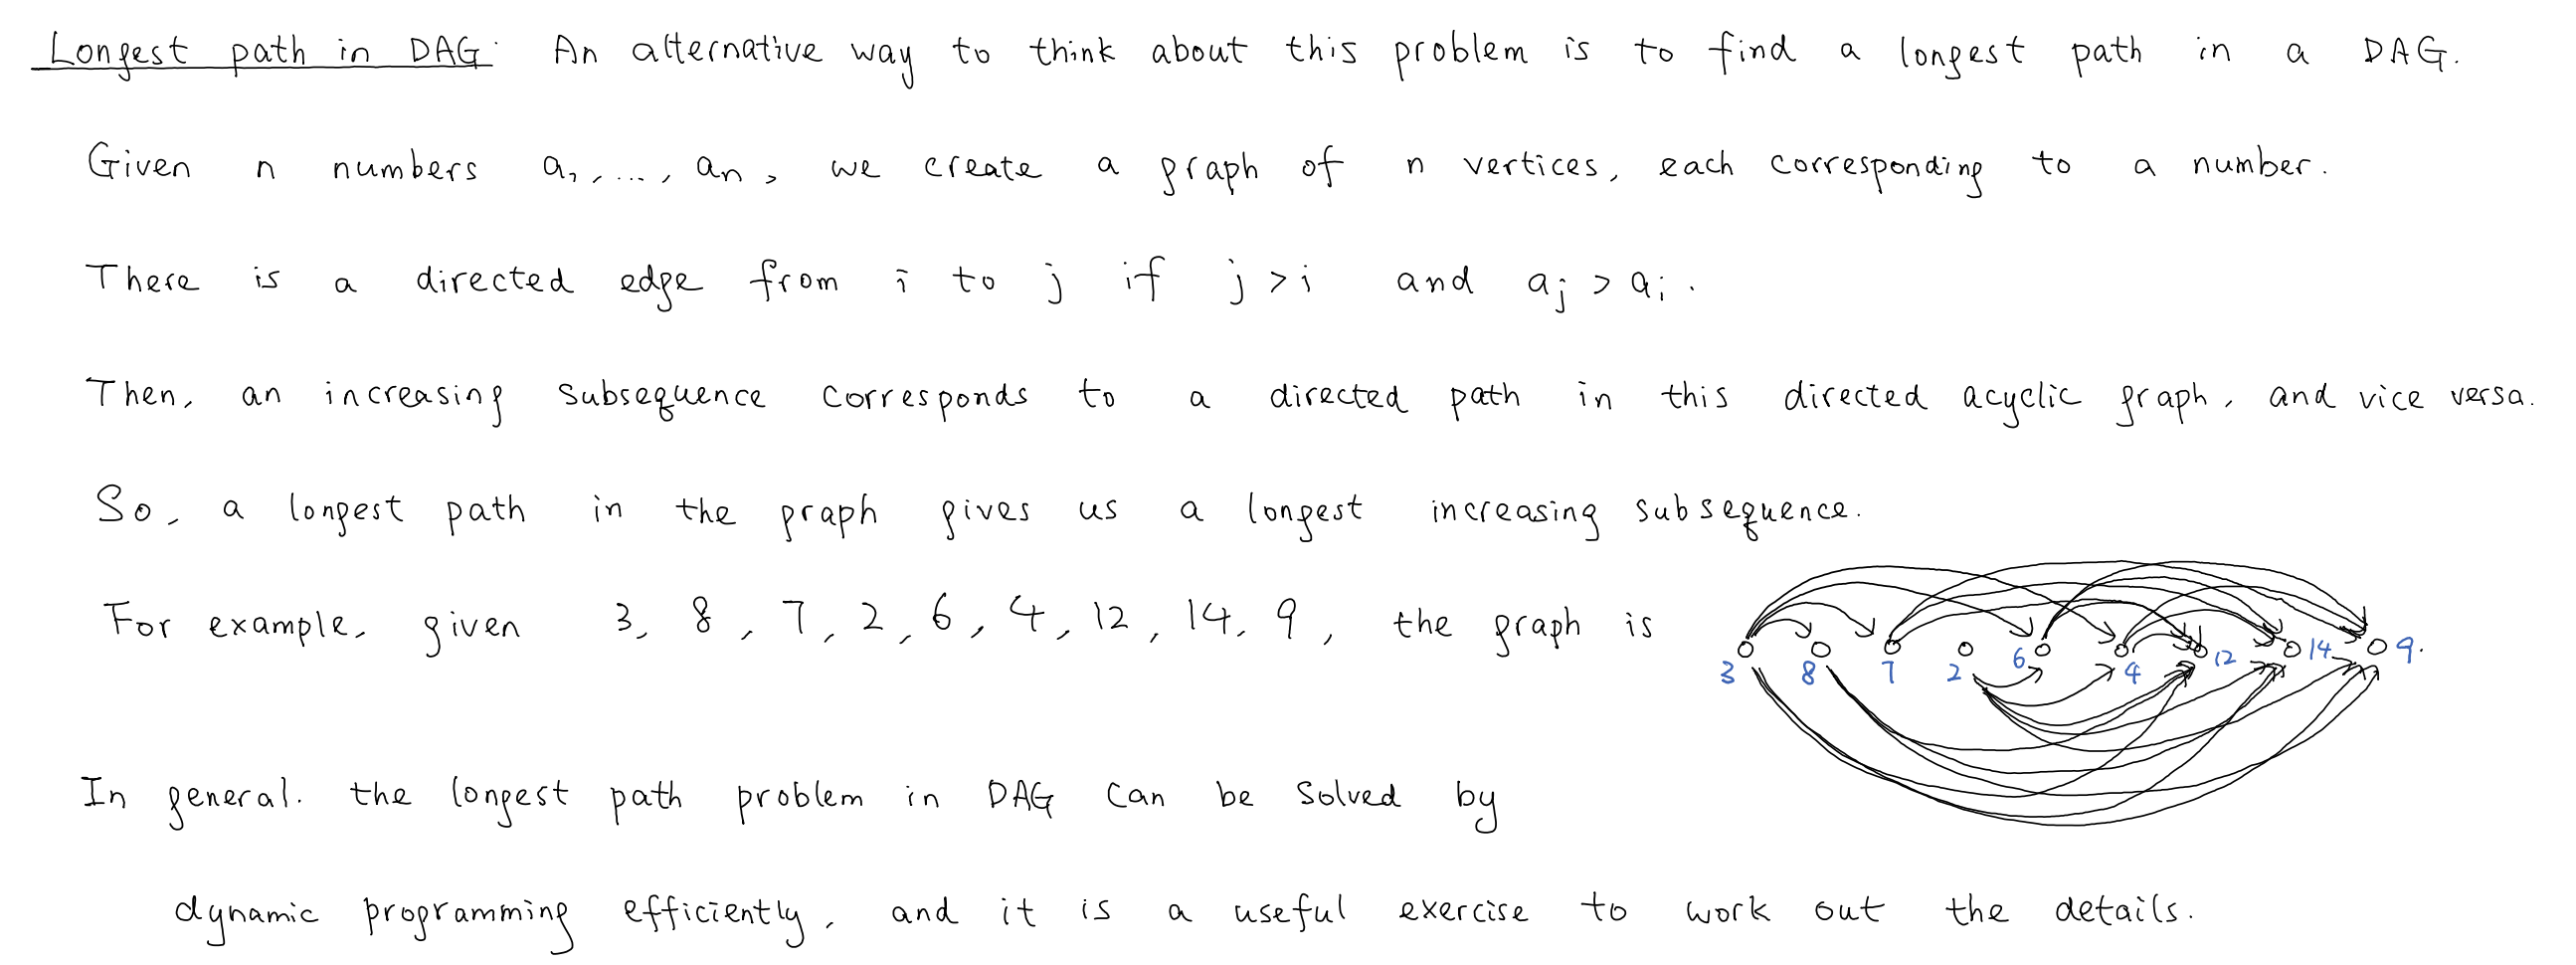 Longest path in DAG: An alternative way to think about this problem is to find a longest path in a DAG.
Given n numbers a₁, ..., aₙ, we create a graph of n vertices, each corresponding to a number.
There is a directed edge from i to j if j > i and aⱼ > aᵢ.
Then, an increasing subsequence corresponds to a directed path in this directed acyclic graph, and vice versa.
So, a longest path in the graph gives us a longest increasing subsequence.
For example, given 3, 8, 7, 2, 6, 4, 12, 14, 9, the graph is
3 8 7 2 6 4 12 14 9.
In general, the longest path problem in DAG can be solved by
dynamic programming efficiently, and it is a useful exercise to work out the details.